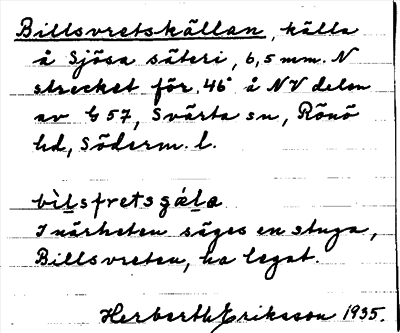 Billsvretskällan, källa
å Sjösa säteri, 6,5 mm. N
strecket för 46' å NV delen
av G 57, Svärta sn, Rönö
hd, Söderm. l.
bìlsfretsgǽla
I närheten säges en stuga,
Billsvreten, ha legat.
Herberth Eriksson 1935.